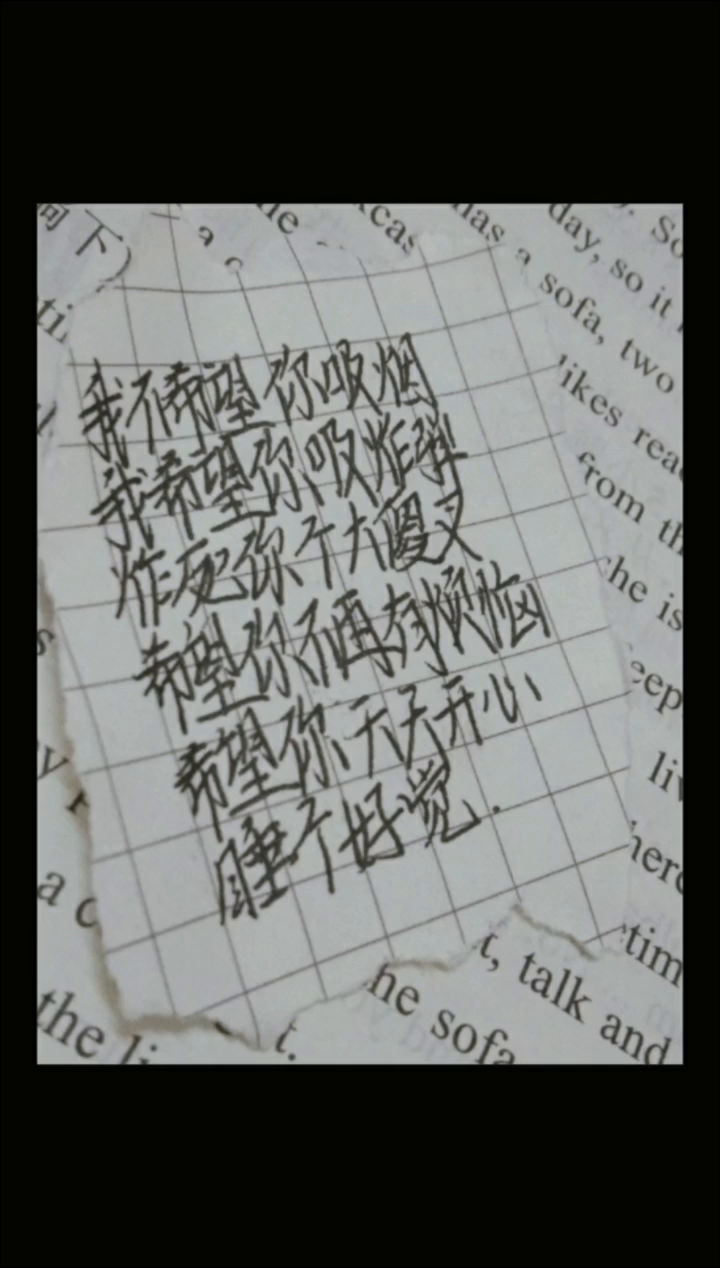 我不希望你吸烟
我希望你吸炸弹
炸死你个大傻叉
希望你不再有烦恼
希望你天天开心
睡个好觉.
下)
a c
has a sofa, two
day, so it
So
likes read
from th
she is
eep
liv
here
tim
a c
the li
t.
he sofa
t, talk and